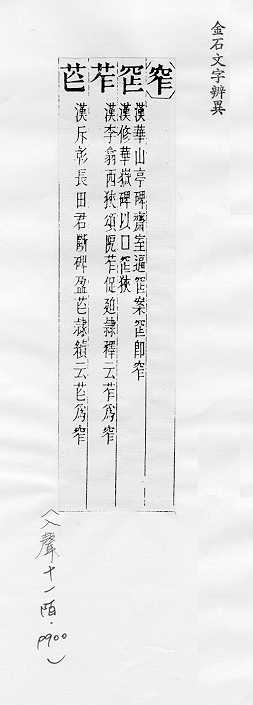 金石文字辨異
窄
笮 漢華山亭碑齋室逼笮案笮即窄
漢脩華嶽碑以口笮狹
苲 漢李翕西狹頌阨苲促迫隸釋云苲為窄
漢斥彰長田君斷碑盈苲隸續云苲為窄
(入聲十一陌.P900)